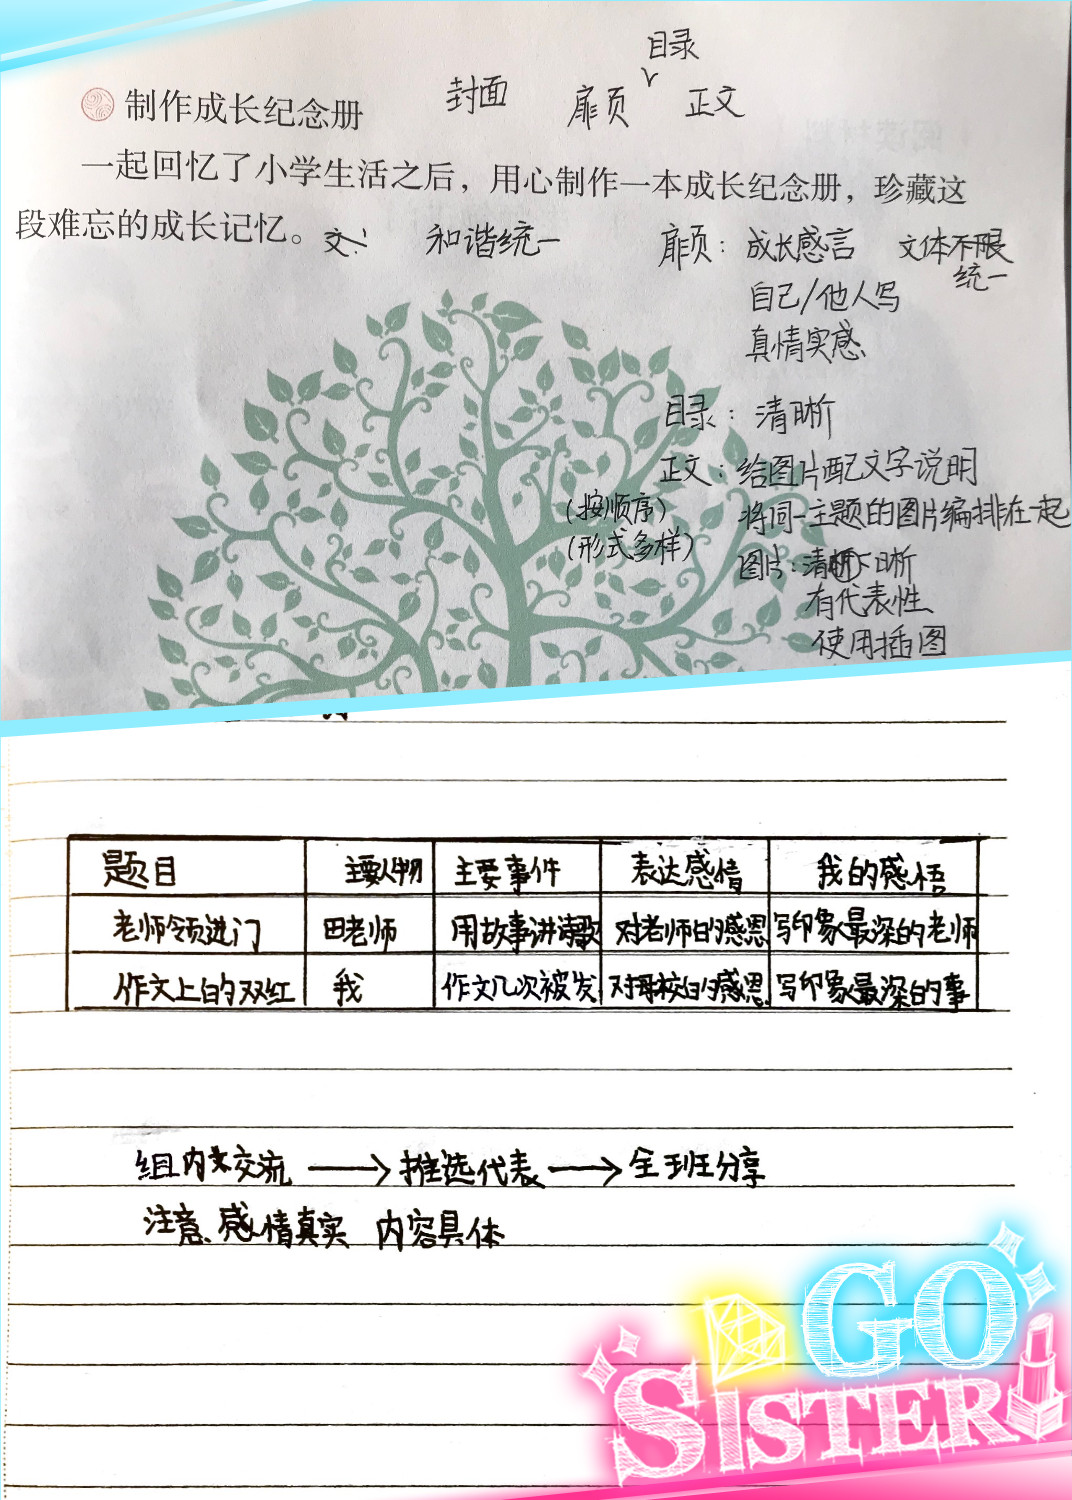 目录
封面 扉页 ∨ 正文
制作成长纪念册
一起回忆了小学生活之后，用心制作一本成长纪念册，珍藏这
段难忘的成长记忆。
和谐统一
扉页：成长感言 文体不限
统一
自己/他人写
真情实感
目录：清晰
正文：给图片配文字说明
(按顺序) 将同一主题的图片编排在一起
(形式多样)
图片：清晰
有代表性
使用插图
题目 主要人物 主要事件 表达感情 我的感悟
老师领进门 田老师 用故事讲诗歌 对老师的感恩 写印象最深的老师
作文上的双红 我 作文几次被发 对母校的感恩 写印象最深的事
组内交流 → 推选代表 → 全班分享
注意 感情真实 内容具体
GO
SISTER